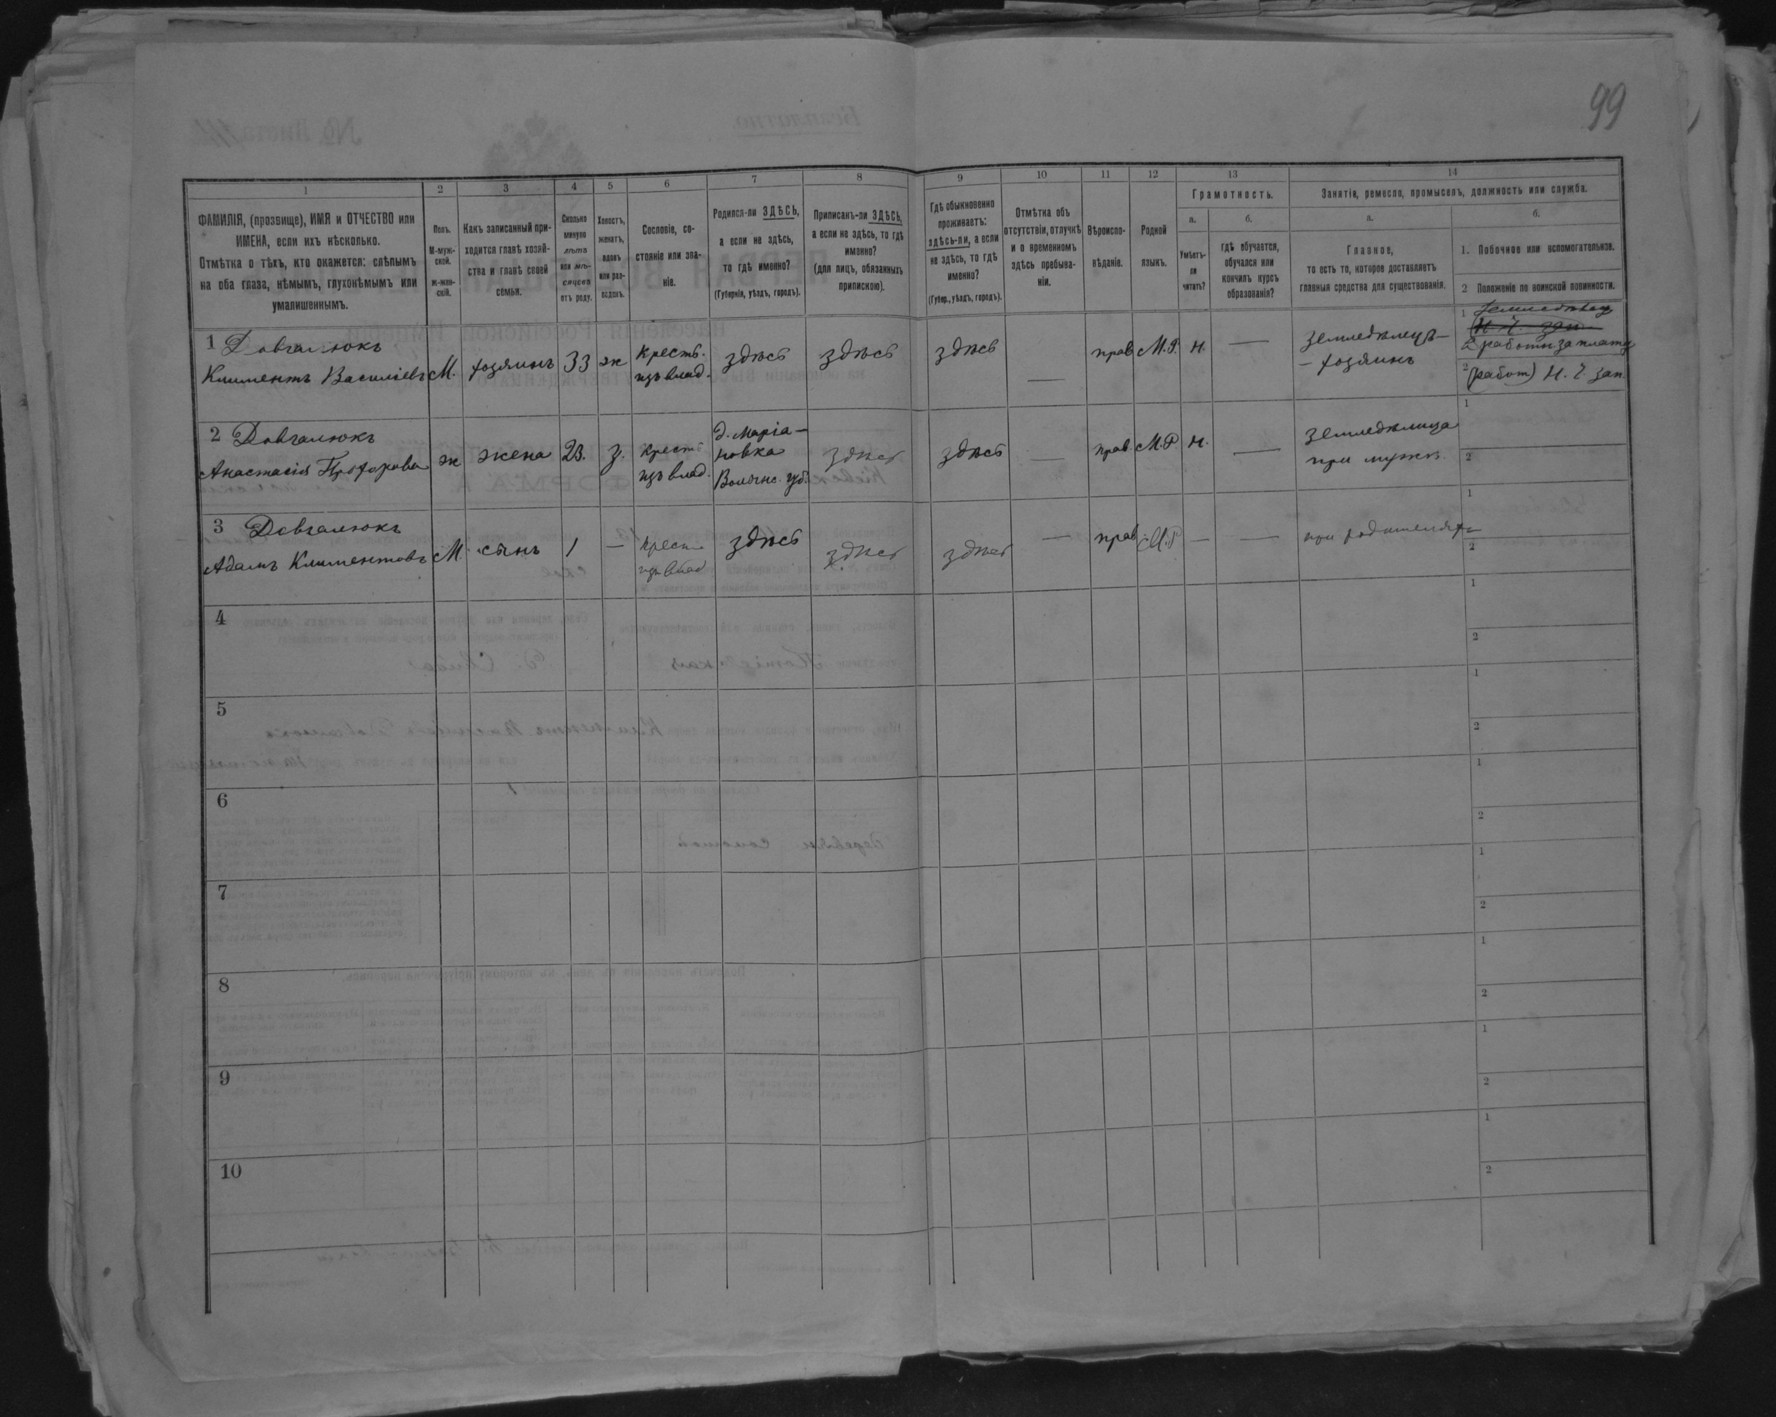 99
1
2
3
4
5
6
7
8
9
10
11
12
13
14
ФАМИЛІЯ, (прозвище), ИМЯ и ОТЧЕСТВО или
ИМЕНА, если ихъ нѣсколько.
Отмѣтка о тѣхъ, кто окажется: слѣпымъ
на оба глаза, нѣмымъ, глухонѣмымъ или
умалишеннымъ.
Полъ.
М-муж-
ской.
ж-жен-
скій.
Какъ записанный при-
ходится главѣ хозяй-
ства и главѣ своей
семьи.
Сколько
минуло
лѣтъ
или мѣ-
сяцевъ
отъ роду.
Холостъ,
женатъ,
вдовъ
или раз-
веденъ.
Сословіе, со-
стояніе или зва-
ніе.
Родился-ли ЗДѢСЬ,
а если не здѣсь,
то гдѣ именно?
(Губернія, уѣздъ, городъ).
Приписанъ-ли ЗДѢСЬ,
а если не здѣсь, то гдѣ
именно?
(для лицъ, обязанныхъ
припискою).
Гдѣ обыкновенно
проживаетъ:
здѣсь-ли, а если
не здѣсь, то гдѣ
именно?
(Губер., уѣздъ, городъ).
Отмѣтка объ
отсутствіи, отлучкѣ
и о временномъ
здѣсь пребыва-
ніи.
Вѣроиспо-
вѣданіе.
Родной
языкъ.
Грамотность.
а.
Умѣетъ-
ли
читать?
б.
гдѣ обучается,
обучался или
кончилъ курсъ
образованія?
Занятія, ремесло, промыселъ, должность или служба.
а.
Главное,
то есть то, которое доставляетъ
главныя средства для существованія.
б.
1. Побочное или вспомогательное.
2 Положеніе по воинской повинности.
1 Довгалюкъ
Климентъ Василіевъ М. хозяинъ 33 ж Крестъ. изъ влад. здѣсь здѣсь здѣсь — прав М.Р. н. — земледѣлецъ — хозяинъ
1 Земледѣлец
работн за плату
2 (работ) Н. Ч. зап
2 Довгалюкъ
Анастасія Прохорова ж жена 23. з. крест изъ влад. д. Маріа- новка Волынс. губ. здѣсь здѣсь — прав М.Р н. — земледѣлица при мужѣ
1
2
3 Довгалюкъ
Адамъ Климентовъ М сынъ 1 — крест изъ влад здѣсь здѣсь здѣсь — прав М.Р — — при родителях
1
2
4
1
2
5
1
2
6
1
2
7
1
2
8
1
2
9
1
2
10
1
2